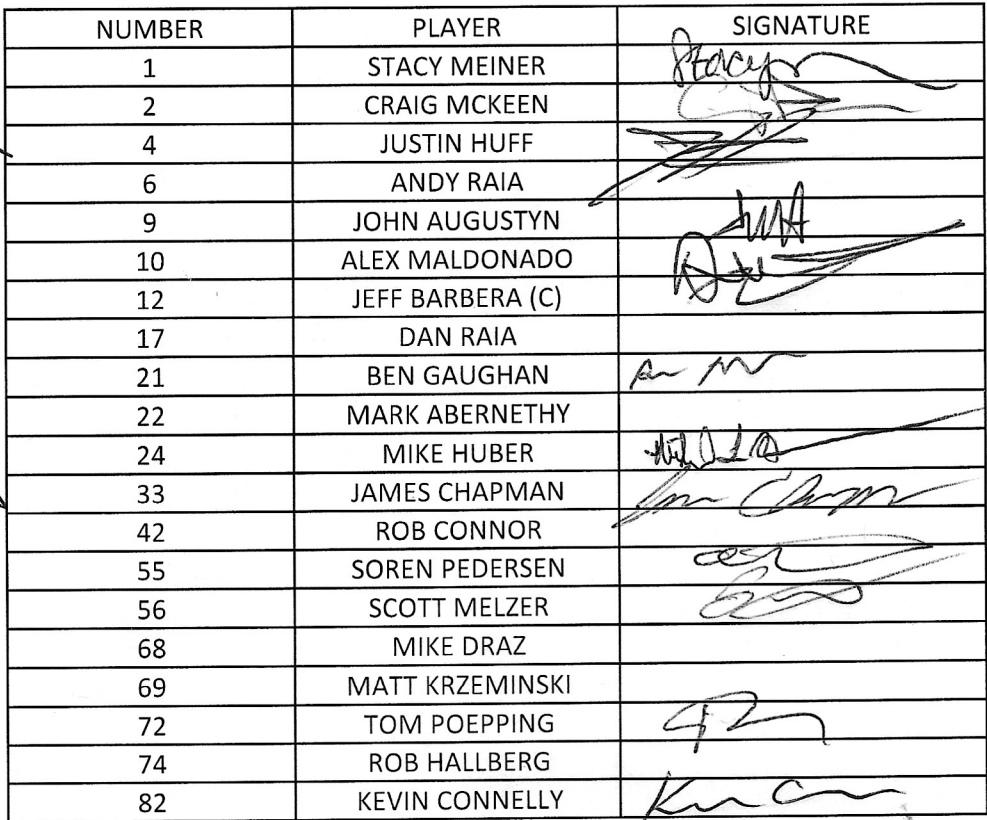 NUMBER PLAYER SIGNATURE
1 STACY MEINER Stacy
2 CRAIG MCKEEN
4 JUSTIN HUFF
6 ANDY RAIA
9 JOHN AUGUSTYN JMA
10 ALEX MALDONADO
12 JEFF BARBERA (C)
17 DAN RAIA
21 BEN GAUGHAN
22 MARK ABERNETHY
24 MIKE HUBER
33 JAMES CHAPMAN
42 ROB CONNOR
55 SOREN PEDERSEN
56 SCOTT MELZER
68 MIKE DRAZ
69 MATT KRZEMINSKI
72 TOM POEPPING
74 ROB HALLBERG
82 KEVIN CONNELLY